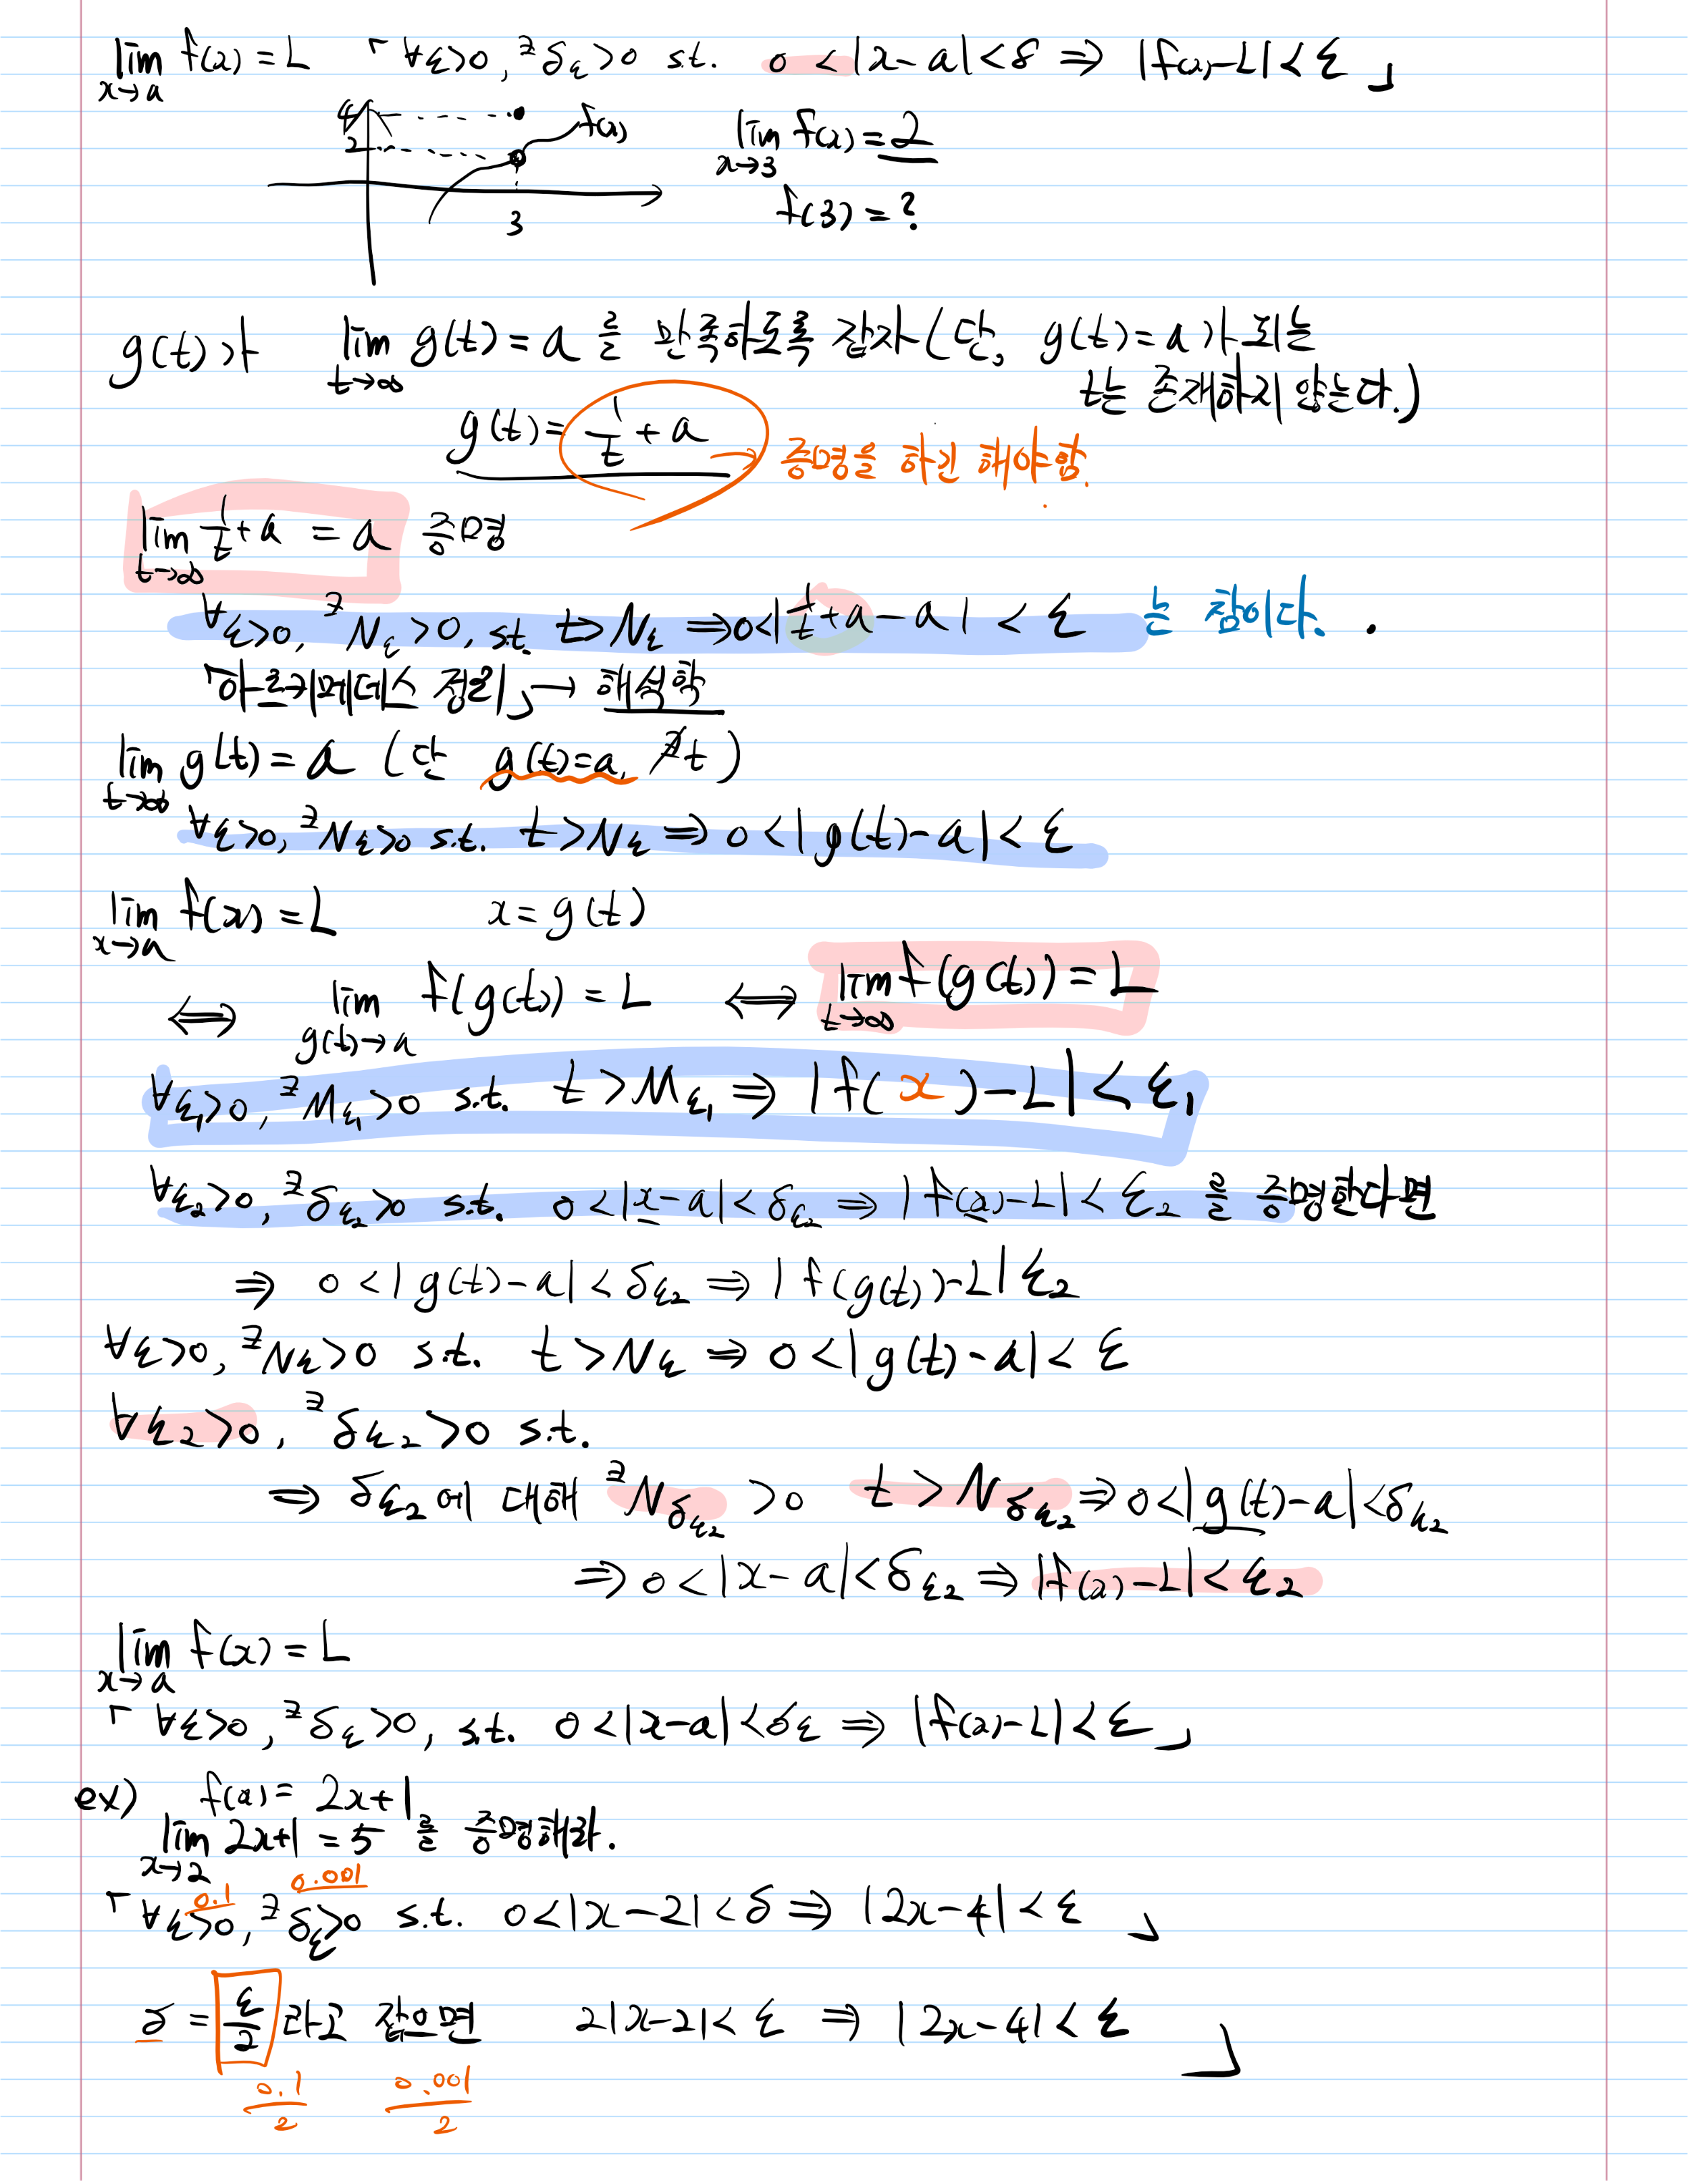 lim f(x) = L 「∀ε>0, ∃δε>0 s.t. 0<|x-a|<δ ⇒ |f(x)-L|<ε」
x→a
4
2
f(x)
3
lim f(x) = 2
x→3
f(3) = ?
g(t)가 lim g(t) = a 를 만족하도록 잡자 (단, g(t)=a가 되는
t→∞ t는 존재하지 않는다.)
g(t) = 1/t + a → 증명을 하긴 해야함.
lim 1/t + a = a 증명
t→∞
∀ε>0, ∃Nε>0, s.t. t>Nε ⇒ 0<|1/t+a-a| < ε 는 참이다.
「아르키메데스 정리」→ 해석학
lim g(t) = a (단 g(t)=a, ∄t)
t→∞
∀ε>0, ∃Nε>0 s.t. t>Nε ⇒ 0<|g(t)-a|<ε
lim f(x) = L x = g(t)
x→a
⇔ lim f(g(t)) = L ⇔ lim f(g(t)) = L
g(t)→a t→∞
∀ε1>0, ∃Mε1>0 s.t. t>Mε1 ⇒ |f(x)-L|<ε1
∀ε2>0, ∃δε2>0 s.t. 0<|x-a|<δε2 ⇒ |f(x)-L|<ε2 를 증명한다면
⇒ 0<|g(t)-a|<δε2 ⇒ |f(g(t))-L|ε2
∀ε>0, ∃Nε>0 s.t. t>Nε ⇒ 0<|g(t)-a|<ε
∀ε2>0, ∃δε2>0 s.t.
⇒ δε2에 대해 ∃Nδε2 >0 t>Nδε2 ⇒ 0<|g(t)-a|<δε2
⇒ 0<|x-a|<δε2 ⇒ |f(x)-L|<ε2
lim f(x) = L
x→a
「∀ε>0, ∃δε>0, s.t. 0<|x-a|<δε ⇒ |f(x)-L|<ε」
ex) f(x) = 2x+1
lim 2x+1 = 5 를 증명해라.
x→2
0.1 0.001
「∀ε>0, ∃δε>0 s.t. 0<|x-2|<δ ⇒ |2x-4|<ε 」
δ = ε/2 라고 잡으면 2|x-2|<ε ⇒ |2x-4|<ε 」
0.1/2 0.001/2